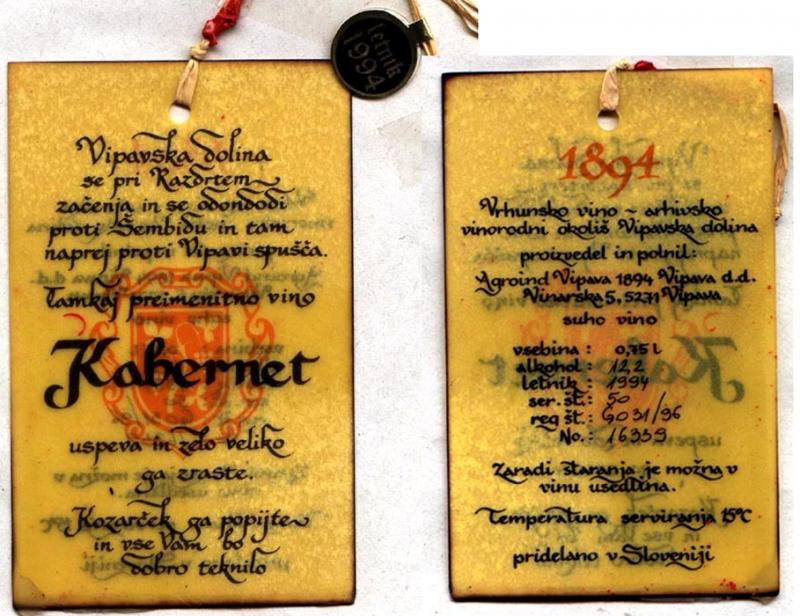 letnik
1994
Vipavska dolina
se pri Razdrtem
začenja in se odondodi
proti Šembidu in tam
naprej proti Vipavi spušča.
Tamkaj preimenitno vino
Kabernet
uspeva in zelo veliko
ga zraste.
Kozarček ga popijte
in vse Vam bo
dobro teknilo
1894
Vrhunsko vino ~ arhivsko
vinorodni okoliš Vipavska dolina
proizvedel in polnil:
Agroind Vipava 1894 Vipava d.d.
Vinarska 5, 5271 Vipava
suho vino
vsebina : 0,75 l
alkohol : 12,2
letnik : 1994
ser. št. : 50
reg št. : GO31/96
No. : 16339
Zaradi staranja je možna v
vinu usedlina.
Temperatura serviranja 15°C
pridelano v Sloveniji